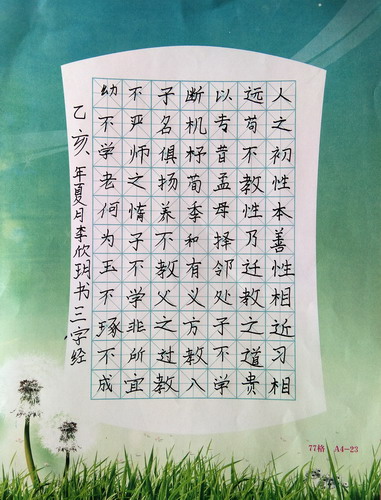 人之初性本善性相近习相
远苟不教性乃迁教之道贵
以专昔孟母择邻处子不学
断机杼荀季和有义方教八
子名俱扬养不教父之过教
不严师之惰子不学非所宜
幼不学老何为玉不琢不成
乙亥年夏月李欣玥书三字经
77格 A4-23